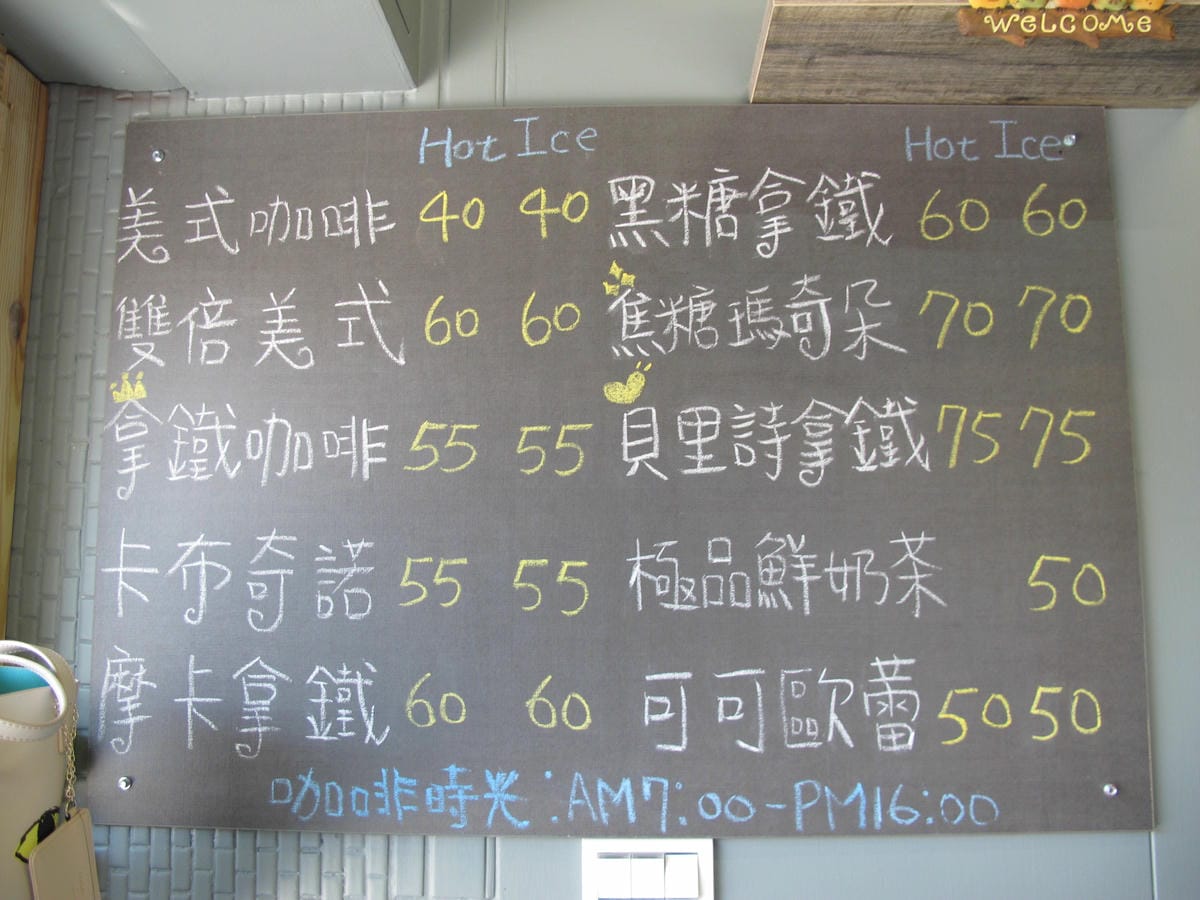 WELCOME
Hot Ice
美式咖啡 40 40
雙倍美式 60 60
拿鐵咖啡 55 55
卡布奇諾 55 55
摩卡拿鐵 60 60
Hot Ice
黑糖拿鐵 60 60
焦糖瑪奇朵 70 70
貝里詩拿鐵 75 75
極品鮮奶茶 50
可可歐蕾 50 50
咖啡時光:AM7:00-PM16:00